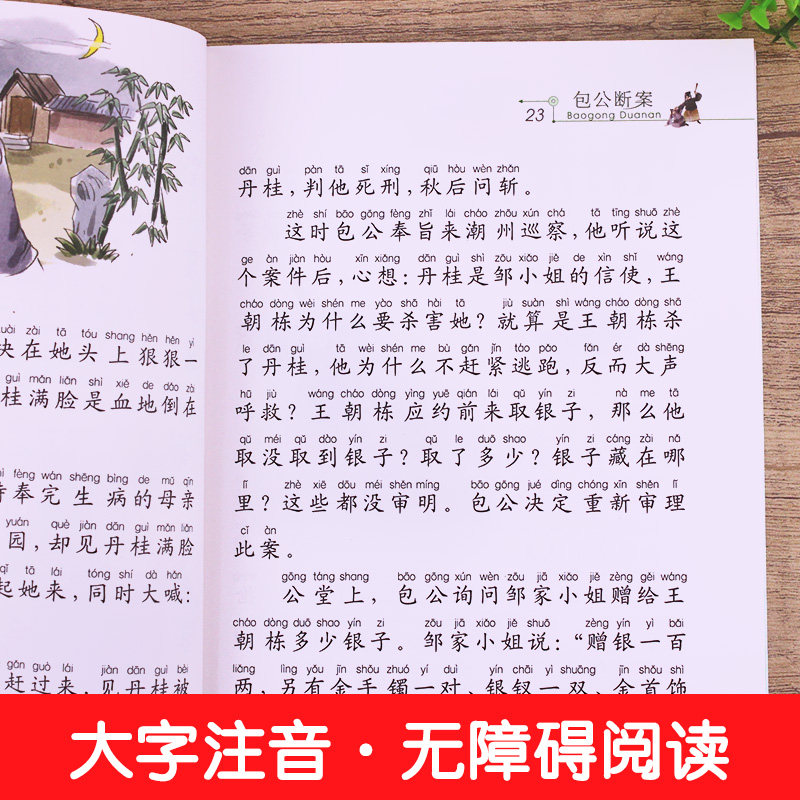 uài zài tā tóu shang hěn hěn yì
块在她头上狠狠一
guì mǎn liǎn shì xiě de dǎo zà
桂满脸是血地倒在
fèng wán shēng bìng de mǔ qīn
侍奉完生病的母亲
yuán què jiàn dān guì mǎn liǎn
园，却见丹桂满脸
qǐ tā lái tóng shí dà hǎn
起她来，同时大喊：
gǎn guò lái jiàn dān guì bèi
赶过来，见丹桂被
包公断案
23 Baogong Duanan
dān guì pàn tā sǐ xíng qiū hòu wèn zhǎn
丹桂，判他死刑，秋后问斩。
zhè shí bāo gōng fèng zhǐ lái cháo zhōu xún chá tā tīng shuō zhè
这时包公奉旨来潮州巡察，他听说这
ge àn jiàn hòu xīn xiǎng dān guì shì zōu xiǎo jiě de xìn shǐ wáng
个案件后，心想：丹桂是邹小姐的信使，王
cháo dòng wèi shén me yào shā hài tā jiù suàn shì wáng cháo dòng shā
朝栋为什么要杀害她？就算是王朝栋杀
le dān guì tā wèi shén me bù gǎn jǐn táo pǎo fǎn ér dà shēng
了丹桂，他为什么不赶紧逃跑，反而大声
hū jiù wáng cháo dòng yìng yuē qián lái qǔ yín zi nà me tā
呼救？王朝栋应约前来取银子，那么他
qǔ méi qǔ dào yín zi qǔ le duō shao yín zi cáng zài nǎ
取没取到银子？取了多少？银子藏在哪
lǐ zhè xiē dōu méi shěn míng bāo gōng jué dìng chóng xīn shěn lǐ
里？这些都没审明。包公决定重新审理
cǐ àn
此案。
gōng táng shang bāo gōng xún wèn zōu jiā xiǎo jiě zèng gěi wáng
公堂上，包公询问邹家小姐赠给王
cháo dòng duō shao yín zi zōu jiā xiǎo jiě shuō zèng yín yì bǎi
朝栋多少银子。邹家小姐说：“赠银一百
liǎng lìng yǒu jīn shǒu zhuó yí duì yín chāi yì shuāng jīn shǒu shì
两，另有金手镯一对、银钗一双、金首饰
大字注音·无障碍阅读